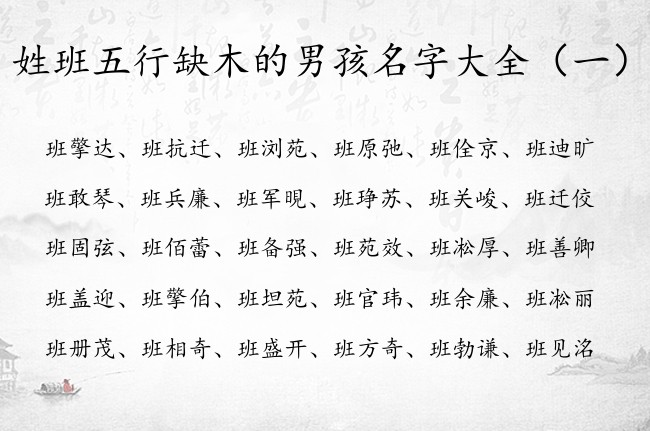 姓班五行缺木的男孩名字大全（一）
班擎达、班抗迁、班浏苑、班原弛、班佺京、班迪旷
班敢琴、班兵廉、班军晛、班琤苏、班关峻、班迁佼
班固弦、班佰蕾、班备强、班苑效、班凇厚、班善卿
班盖迎、班擎伯、班坦苑、班官玮、班余廉、班凇丽
班册茂、班相奇、班盛开、班方奇、班勃谦、班见洺